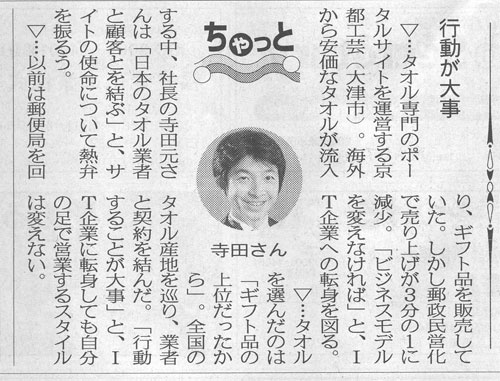 行動が大事
ちゃっと
▽…タオル専門のポー
タルサイトを運営する京
都工芸(大津市)。海外
から安価なタオルが流入
する中、社長の寺田元さ
んは「日本のタオル業者
と顧客とを結ぶ」と、サ
イトの使命について熱弁
を振るう。
▽…以前は郵便局を回
り、ギフト品を販売して
いた。しかし郵政民営化
で売り上げが3分の1に
減少。「ビジネスモデル
を変えなければ」と、I
T企業への転身を図る。
▽…タオル
を選んだのは
「ギフト品の
上位だったか
ら」。全国の
タオル産地を巡り、業者
と契約を結んだ。「行動
することが大事」と、I
T企業に転身しても自分
の足で営業するスタイル
は変えない。
寺田さん